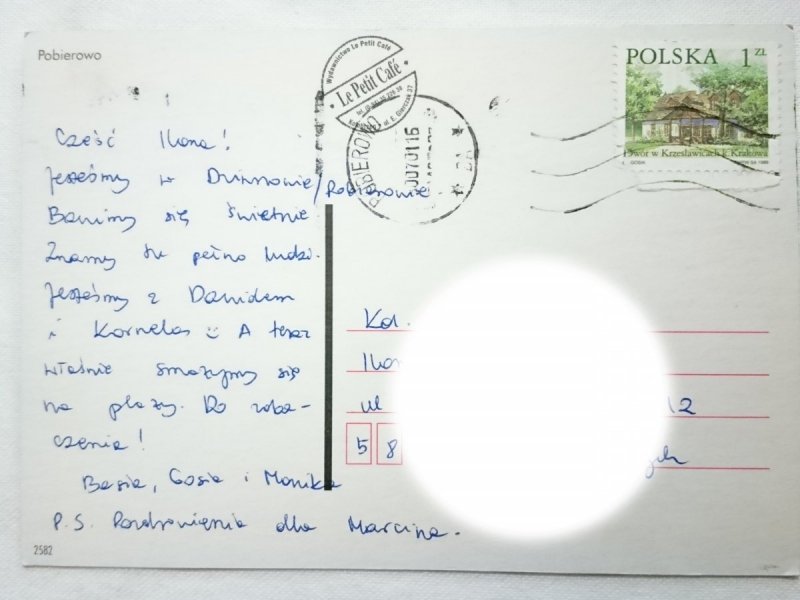 Pobierowo
Wydawnictwo Le Petit Café
• Le Petit Café •
POLSKA 1 ZŁ
Dwór w Krzesławicach k. Krakowa
POBIEROWO
Cześć Ilona!
Jesteśmy w Dziwnowie/Pobierowie
Bawimy się świetnie
Znamy tu pełno ludzi.
Jesteśmy z Dawidem
i Kornelas A teraz
właśnie smażymy się
na plaży. Do zoba-
czenia!
Basia, Gosia i Monika
P.S. Pozdrowienia dla Marcina.
Kol.
ul 12
5 8
2582